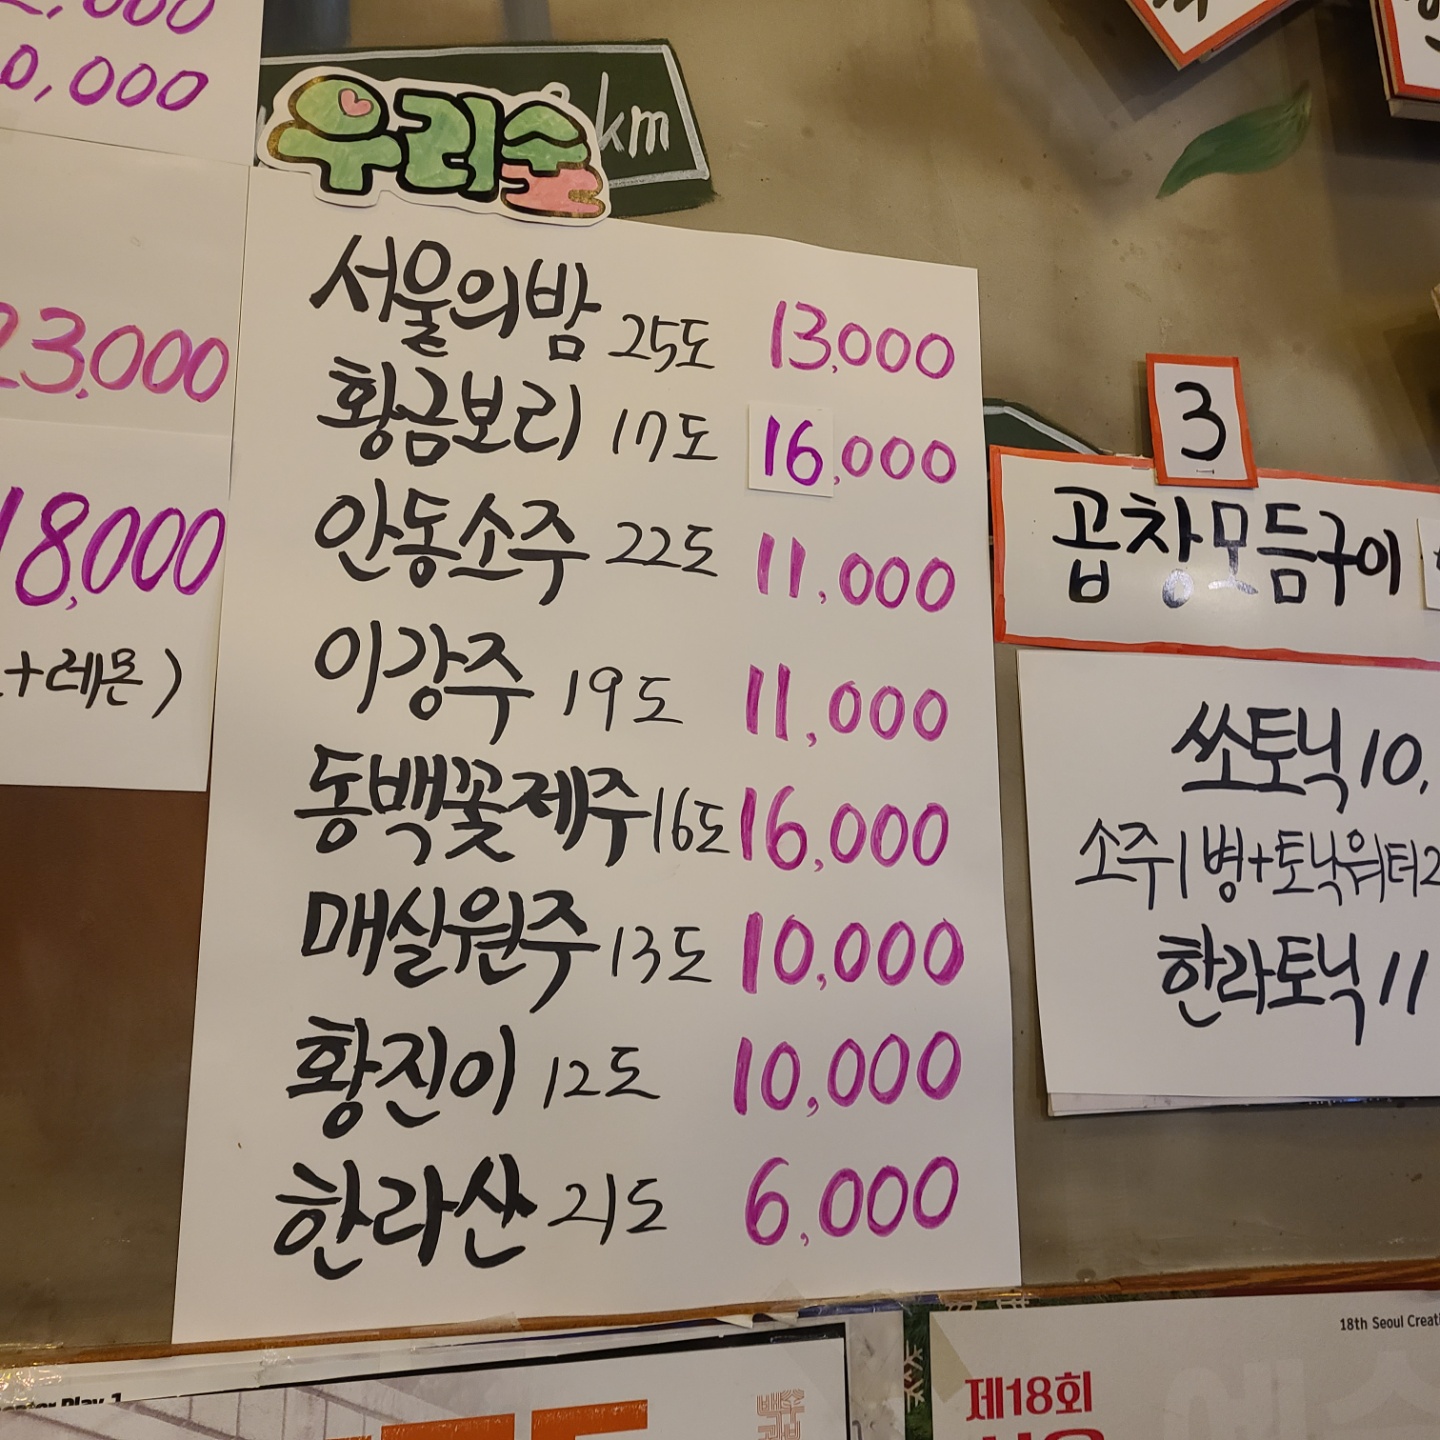 0,000
23,000
18,000
+레몬)
km
우리술
서울의밤 25도 13,000
황금보리 17도 16,000
안동소주 22도 11,000
이강주 19도 11,000
동백꽃제주 16도 16,000
매실원주 13도 10,000
황진이 12도 10,000
한라산 21도 6,000
3
곱창모듬구이
쏘토닉 10,
소주1병+토닉워터2
한라토닉 11
18th Seoul Creati
제18회